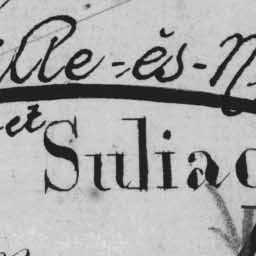 ille-ès-N
et
Suliac